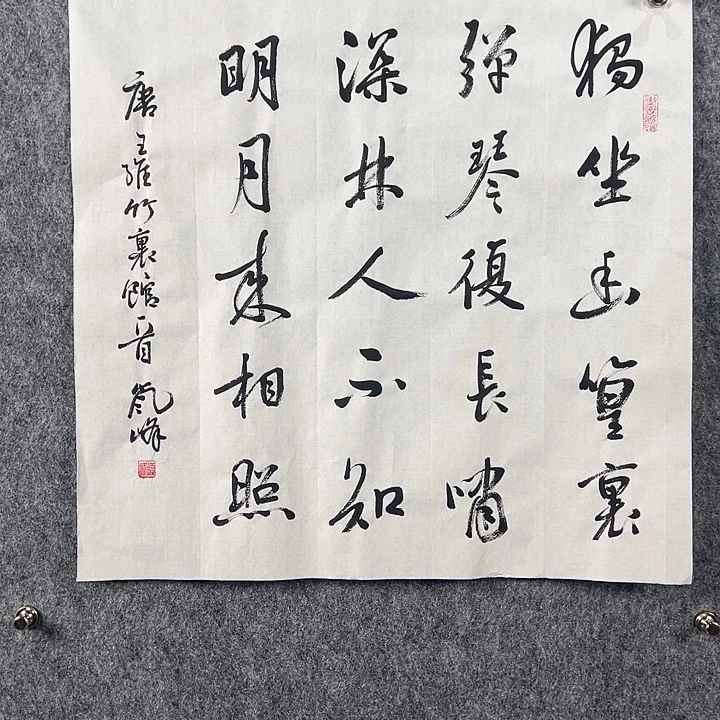 獨坐幽篁裏
彈琴復長嘯
深林人不知
明月来相照
唐王維竹裏館一首 峰